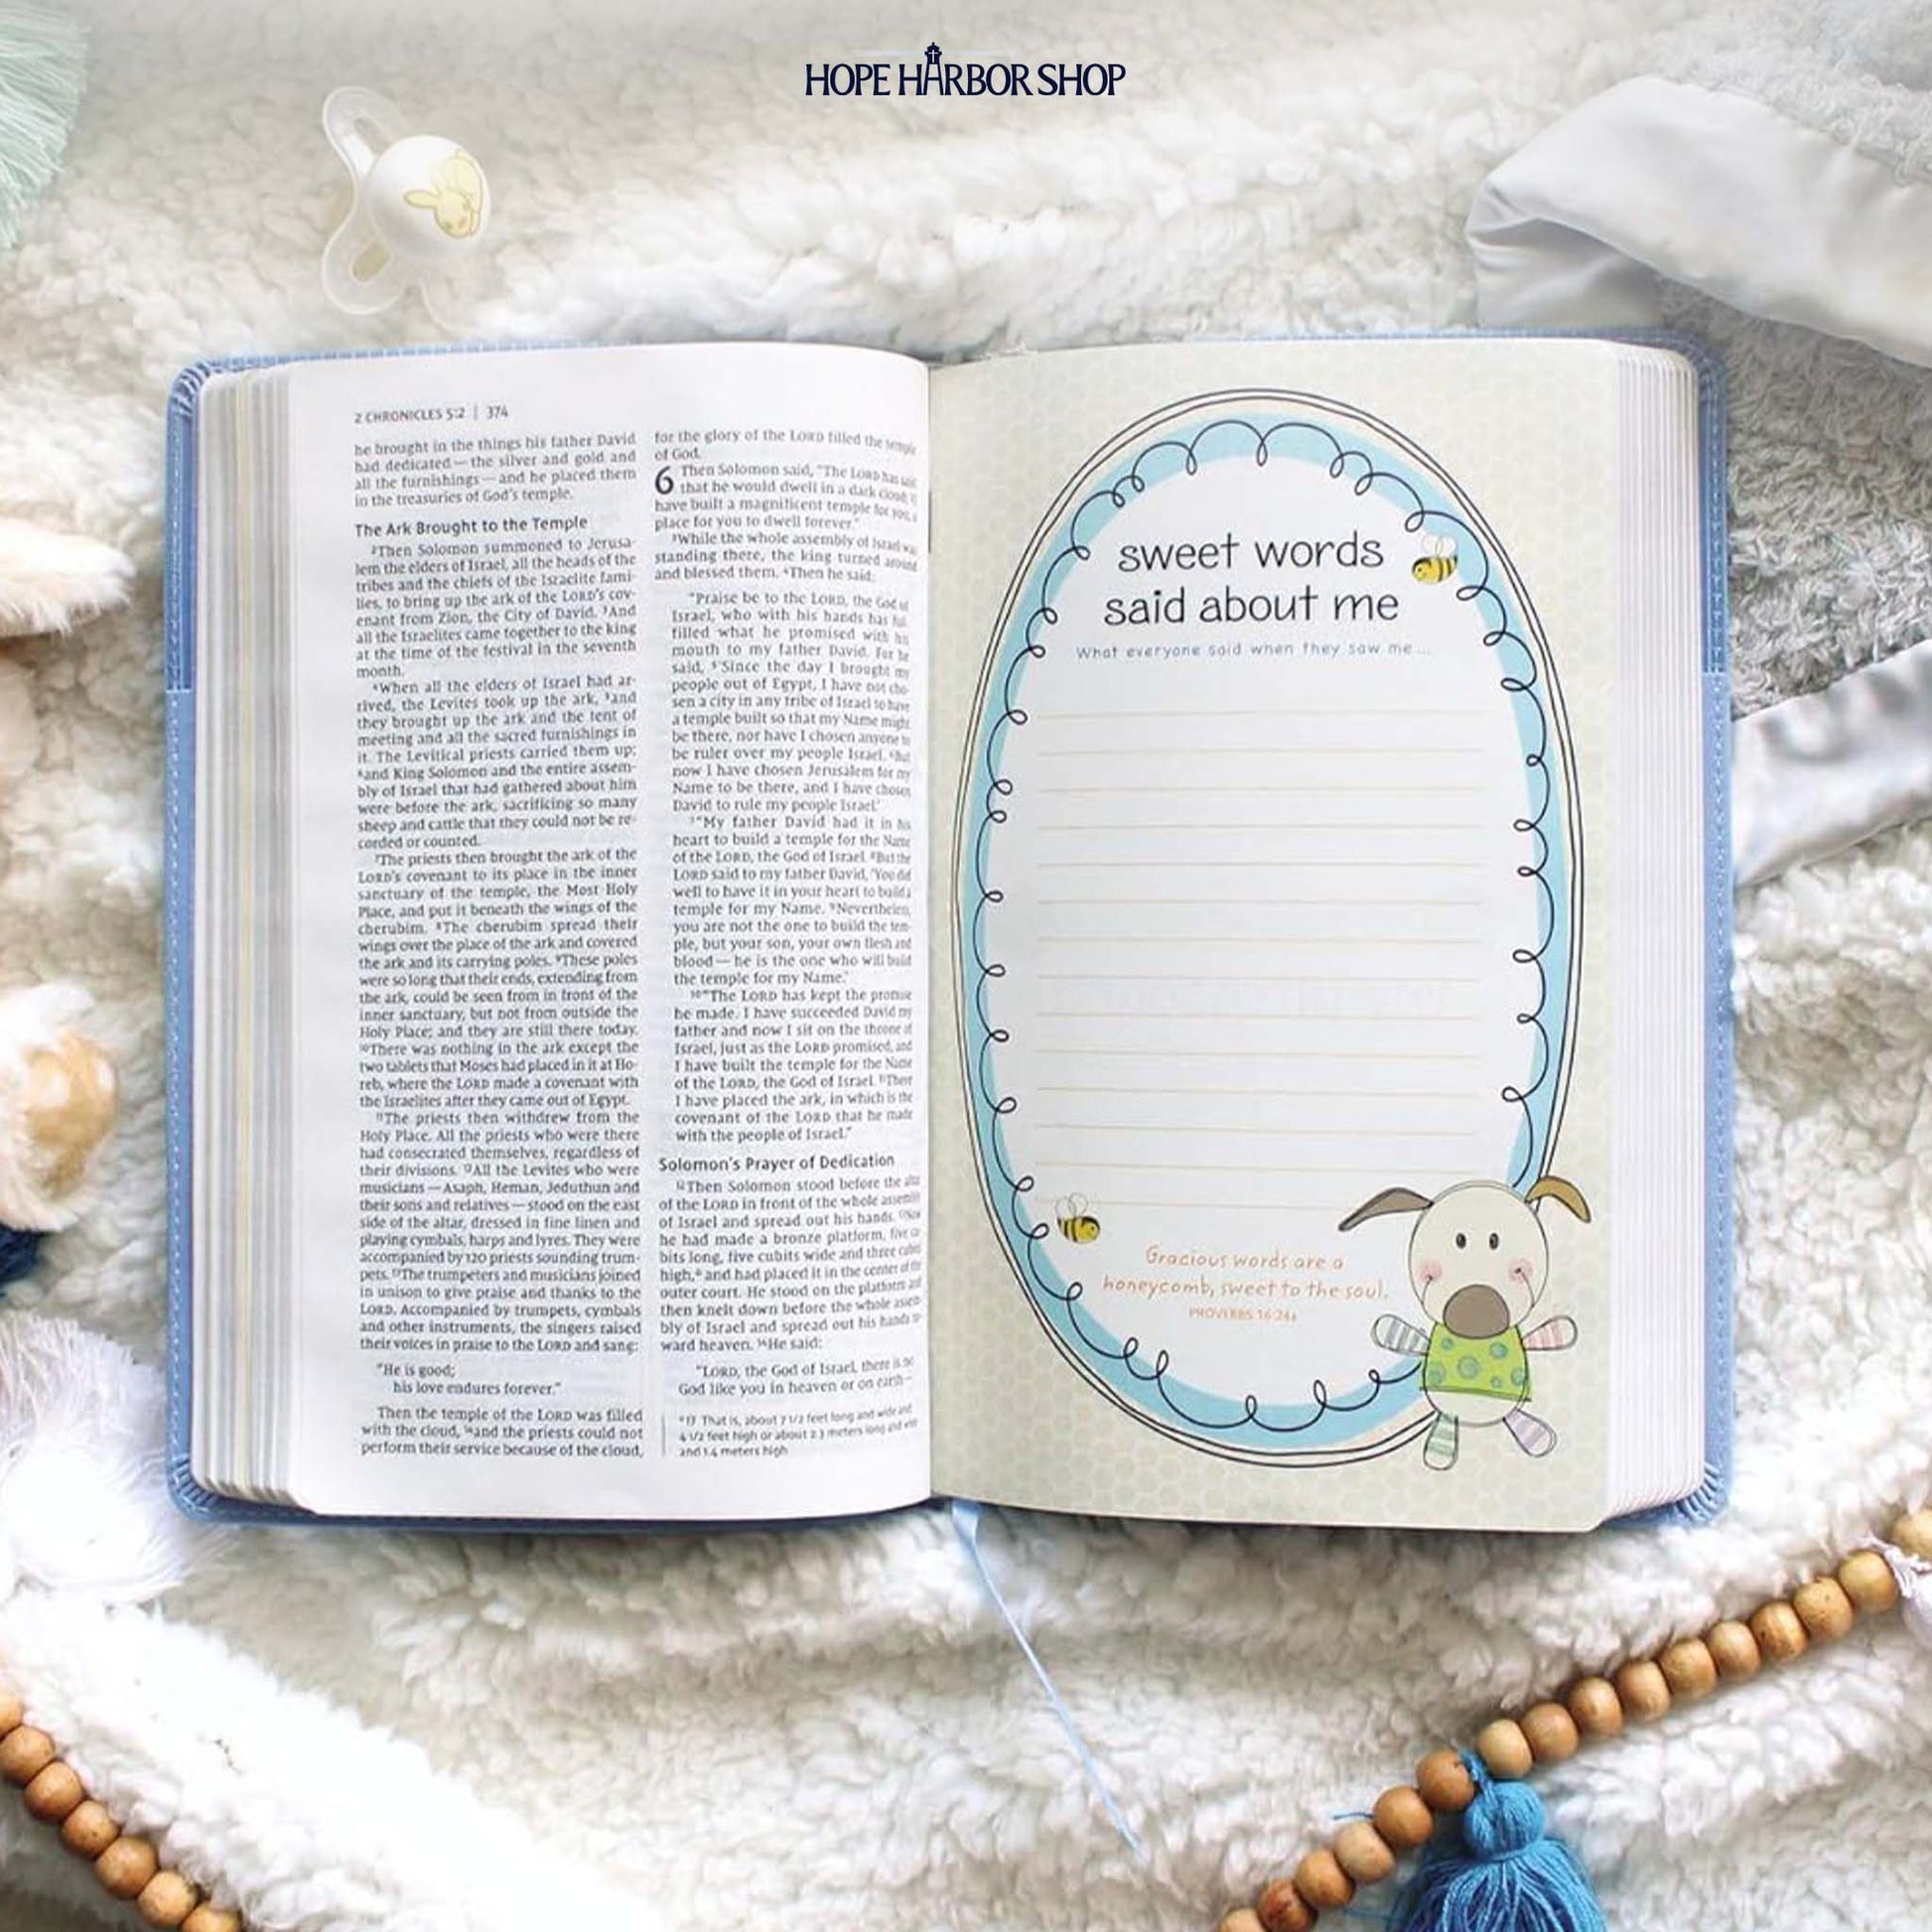 HOPE HARBOR SHOP
2 CHRONICLES 5:2 | 374
he brought in the things his father David
had dedicated — the silver and gold and
all the furnishings — and he placed them
in the treasuries of God's temple.
The Ark Brought to the Temple
2Then Solomon summoned to Jerusa-
lem the elders of Israel, all the heads of the
tribes and the chiefs of the Israelite fami-
lies, to bring up the ark of the LORD's cov-
enant from Zion, the City of David. 3And
all the Israelites came together to the king
at the time of the festival in the seventh
month.
4When all the elders of Israel had ar-
rived, the Levites took up the ark, 5and
they brought up the ark and the tent of
meeting and all the sacred furnishings in
it. The Levitical priests carried them up;
6and King Solomon and the entire assem-
bly of Israel that had gathered about him
were before the ark, sacrificing so many
sheep and cattle that they could not be re-
corded or counted.
7The priests then brought the ark of the
LORD's covenant to its place in the inner
sanctuary of the temple, the Most Holy
Place, and put it beneath the wings of the
cherubim. 8The cherubim spread their
wings over the place of the ark and covered
the ark and its carrying poles. 9These poles
were so long that their ends, extending from
the ark, could be seen from in front of the
inner sanctuary, but not from outside the
Holy Place; and they are still there today.
10There was nothing in the ark except the
two tablets that Moses had placed in it at Ho-
reb, where the LORD made a covenant with
the Israelites after they came out of Egypt.
11The priests then withdrew from the
Holy Place. All the priests who were there
had consecrated themselves, regardless of
their divisions. 12All the Levites who were
musicians — Asaph, Heman, Jeduthun and
their sons and relatives — stood on the east
side of the altar, dressed in fine linen and
playing cymbals, harps and lyres. They were
accompanied by 120 priests sounding trum-
pets. 13The trumpeters and musicians joined
in unison to give praise and thanks to the
LORD. Accompanied by trumpets, cymbals
and other instruments, the singers raised
their voices in praise to the LORD and sang:
"He is good;
his love endures forever."
Then the temple of the LORD was filled
with the cloud, 14and the priests could not
perform their service because of the cloud,
for the glory of the LORD filled the temple
of God.
6 Then Solomon said, "The LORD has said
that he would dwell in a dark cloud;
have built a magnificent temple for you, a
place for you to dwell forever."
3While the whole assembly of Israel was
standing there, the king turned around
and blessed them. 4Then he said:
"Praise be to the LORD, the God of
Israel, who with his hands has ful-
filled what he promised with his
mouth to my father David. For he
said, 5'Since the day I brought my
people out of Egypt, I have not cho-
sen a city in any tribe of Israel to have
a temple built so that my Name might
be there, nor have I chosen anyone to
be ruler over my people Israel. 6But
now I have chosen Jerusalem for my
Name to be there, and I have chosen
David to rule my people Israel.'
7"My father David had it in his
heart to build a temple for the Name
of the LORD, the God of Israel. 8But the
LORD said to my father David, 'You did
well to have it in your heart to build a
temple for my Name. 9Nevertheless,
you are not the one to build the tem-
ple, but your son, your own flesh and
blood — he is the one who will build
the temple for my Name.'
10"The LORD has kept the promise
he made. I have succeeded David my
father and now I sit on the throne of
Israel, just as the LORD promised, and
I have built the temple for the Name
of the LORD, the God of Israel. 11There
I have placed the ark, in which is the
covenant of the LORD that he made
with the people of Israel."
Solomon's Prayer of Dedication
12Then Solomon stood before the altar
of the LORD in front of the whole assembly
of Israel and spread out his hands. 13Now
he had made a bronze platform, five cu-
bits long, five cubits wide and three cubits
high,a and had placed it in the center of the
outer court. He stood on the platform and
then knelt down before the whole assem-
bly of Israel and spread out his hands to-
ward heaven. 14He said:
"LORD, the God of Israel, there is no
God like you in heaven or on earth —
a 13 That is, about 7 1/2 feet long and wide and
4 1/2 feet high or about 2.3 meters long and wide
and 1.4 meters high
sweet words
said about me
What everyone said when they saw me...
Gracious words are a
honeycomb, sweet to the soul.
PROVERBS 16:24a